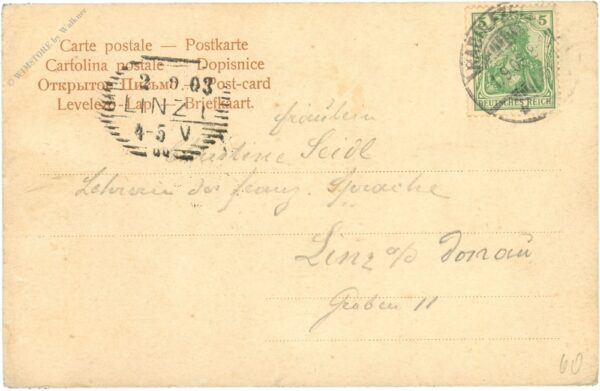 © WIMSTORE by Walkner
Carte postale — Postkarte
Cartolina postale — Dopisnice
Открытое Письмо — Post-card
Levelező-Lap — Briefkaart.
2 9 03
LINZ 1
4-5 V
5 5
DEUTSCHES REICH
Fräulein
Seidl
Lehrerin der franz. Sprache
Linz a/D Donau
Graben 11
60